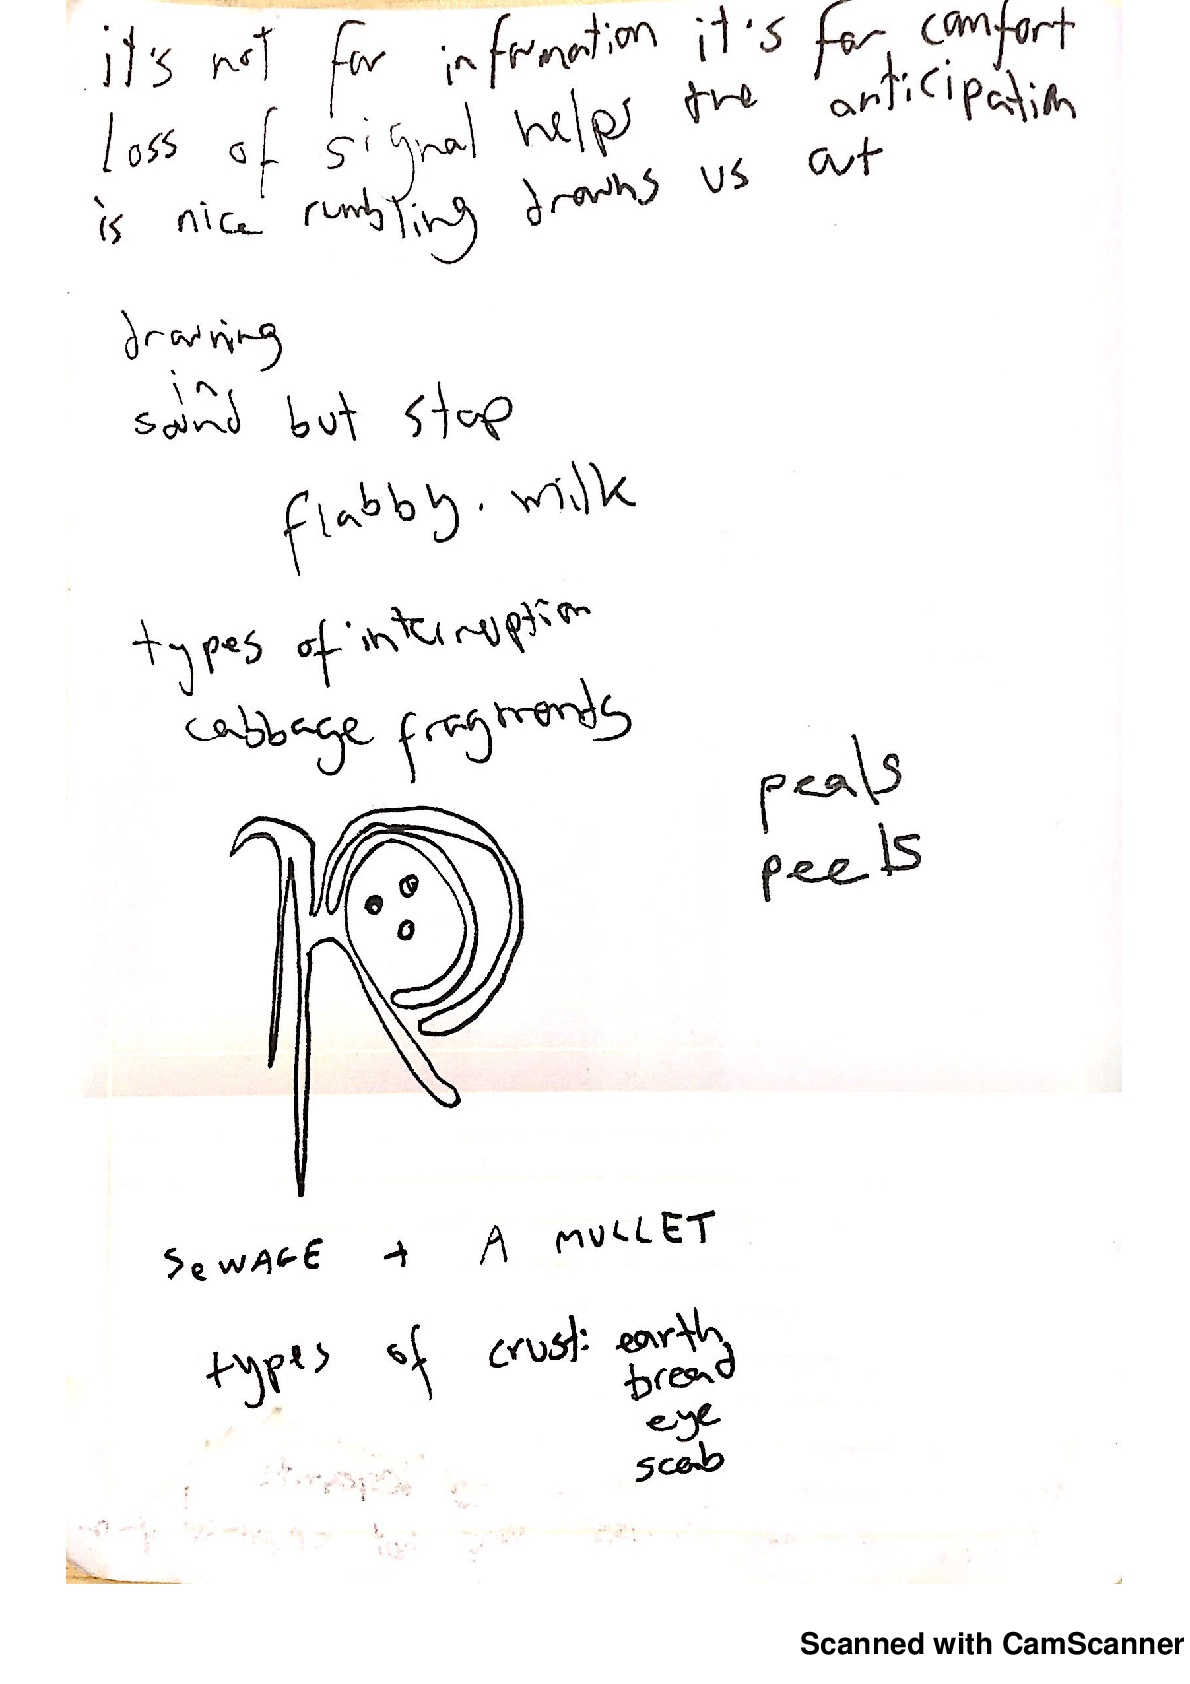 it's not for information it's for comfort
loss of signal helps the anticipation
is nice rumbling drowns us out
drawing
in
sound but stop
flabby. milk
types of interruption
cabbage fragments
peals
peels
SeWAGE + A MULLET
types of crust: earth,
bread
eye
scab
Scanned with CamScanner